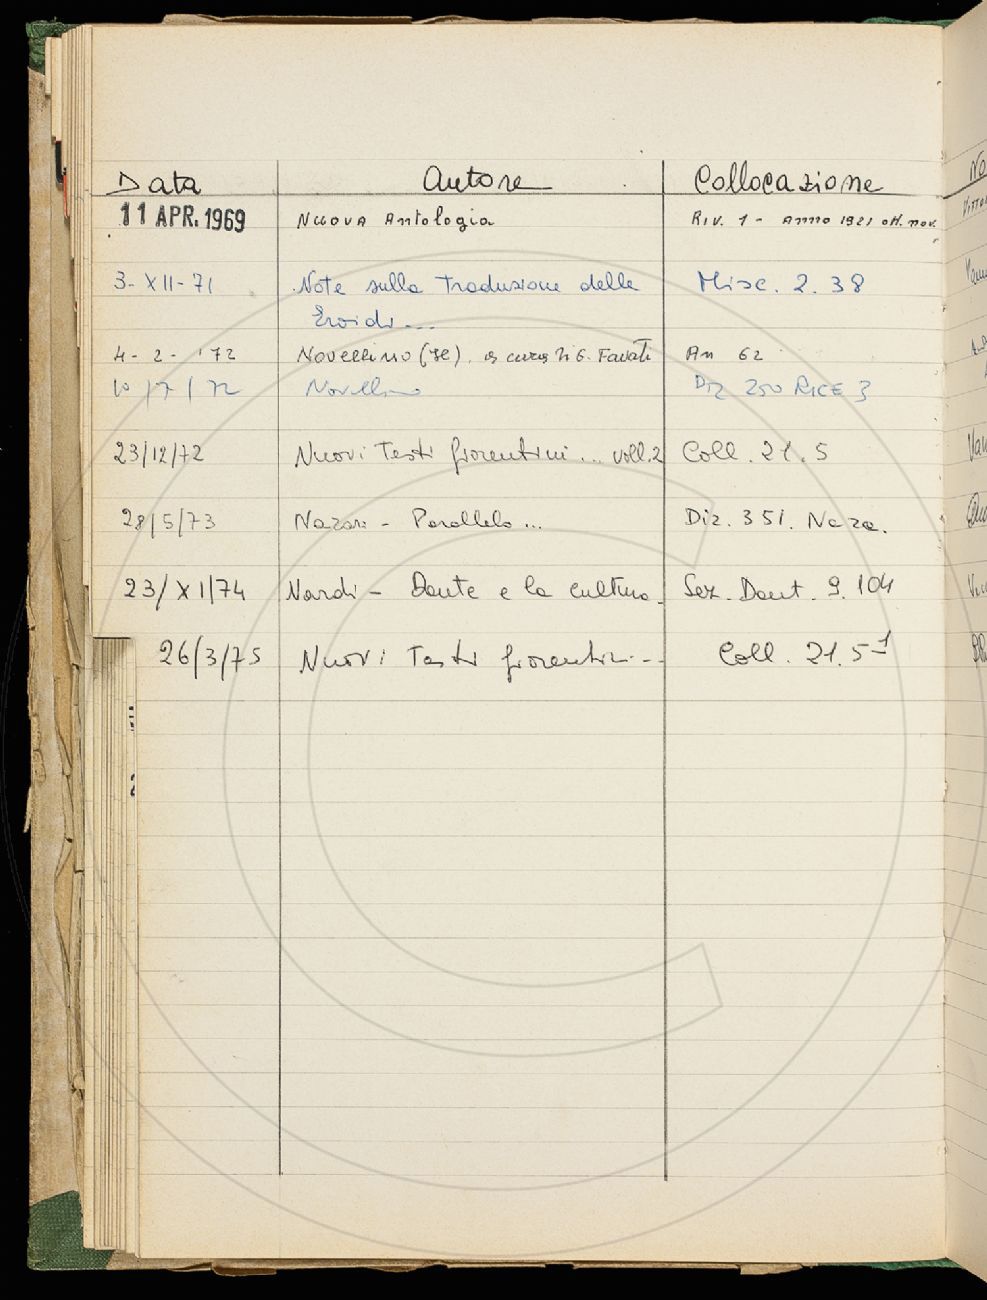 Data Autore Collocazione
11 APR. 1969 Nuova Antologia Riv. 1 - Anno 1921 ott. nov.
3-XII-71 Note sulla traduzione delle Misc. 2. 38
Eroidi...
4-2-'72 Novellino (Il). a cura di G. Favati An 62
10/7/72 Novellino Diz 250 RICE 3
23/12/72 Nuovi Testi fiorentini... voll. 2 Coll. 21. 5
28/5/73 Nazari - Parallelo... Diz. 351. Naza.
23/XI/74 Nardi - Dante e la cultura. Sez. Dant. 9. 104
26/3/75 Nuovi Testi fiorentini... Coll. 21. 5-1